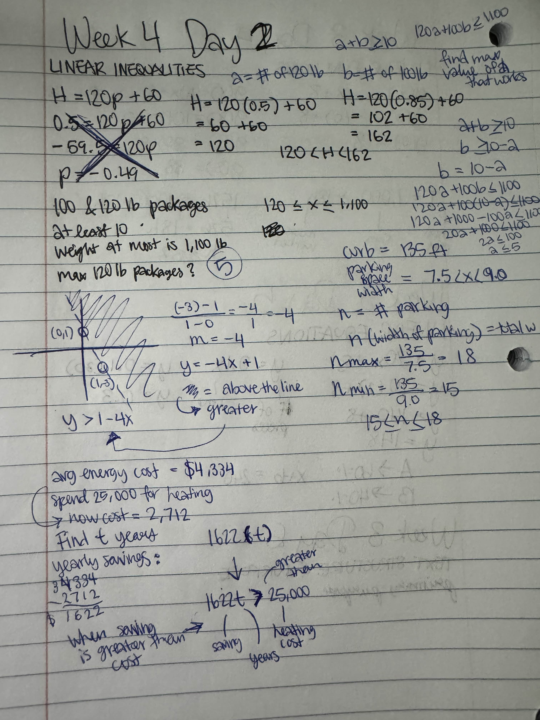 Week 4 Day 2
LINEAR INEQUALITIES
H = 120p + 60
0.5 = 120p + 60
-59.5 = 120p
p = -0.49
H = 120(0.5) + 60
= 60 + 60
= 120
H = 120(0.85) + 60
= 102 + 60
= 162
120 < H < 162
a+b ≥ 10
120a+100b ≤ 1100
a = # of 120 lb
b = # of 100 lb
find max
value of a
that works
a+b ≥ 10
b ≥ 10-a
b = 10-a
120a+100b ≤ 1100
120a+100(10-a) ≤ 1100
120a+1000-100a ≤ 1100
20a+1000 ≤ 1100
20a ≤ 100
a ≤ 5
100 & 120 lb packages
at least 10
weight at most is 1,100 lb
max 120 lb packages? 5
120 ≤ x ≤ 1,100
curb = 135 ft
parking
space
width
= 7.5 < x < 9.0
n = # parking
n (width of parking) = total w
n max = 135/7.5 = 18
n min = 135/9.0 = 15
15 ≤ n ≤ 18
(0,1)
(1,-3)
y > 1-4x
(-3)-1/1-0 = -4/1 = -4
m = -4
y = -4x + 1
= above the line
→ greater
avg energy cost = $4,334
spend 25,000 for heating
→ now cost = 2,712
Find t years
yearly savings:
4334
- 2712
$ 1622
1622(t)
↓
1622t > 25,000
greater
than
saving
years
heating
cost
When saving
is greater than
cost